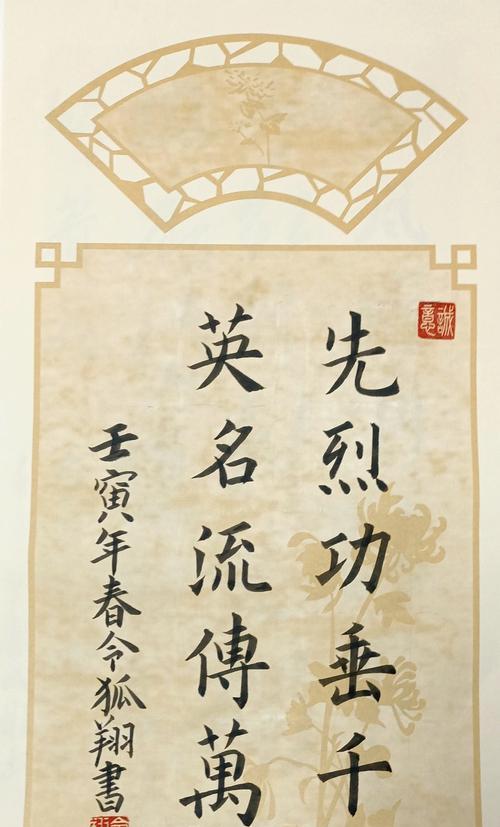 先烈功垂千
英名流傳萬
壬寅年春令狐翔書
誠意